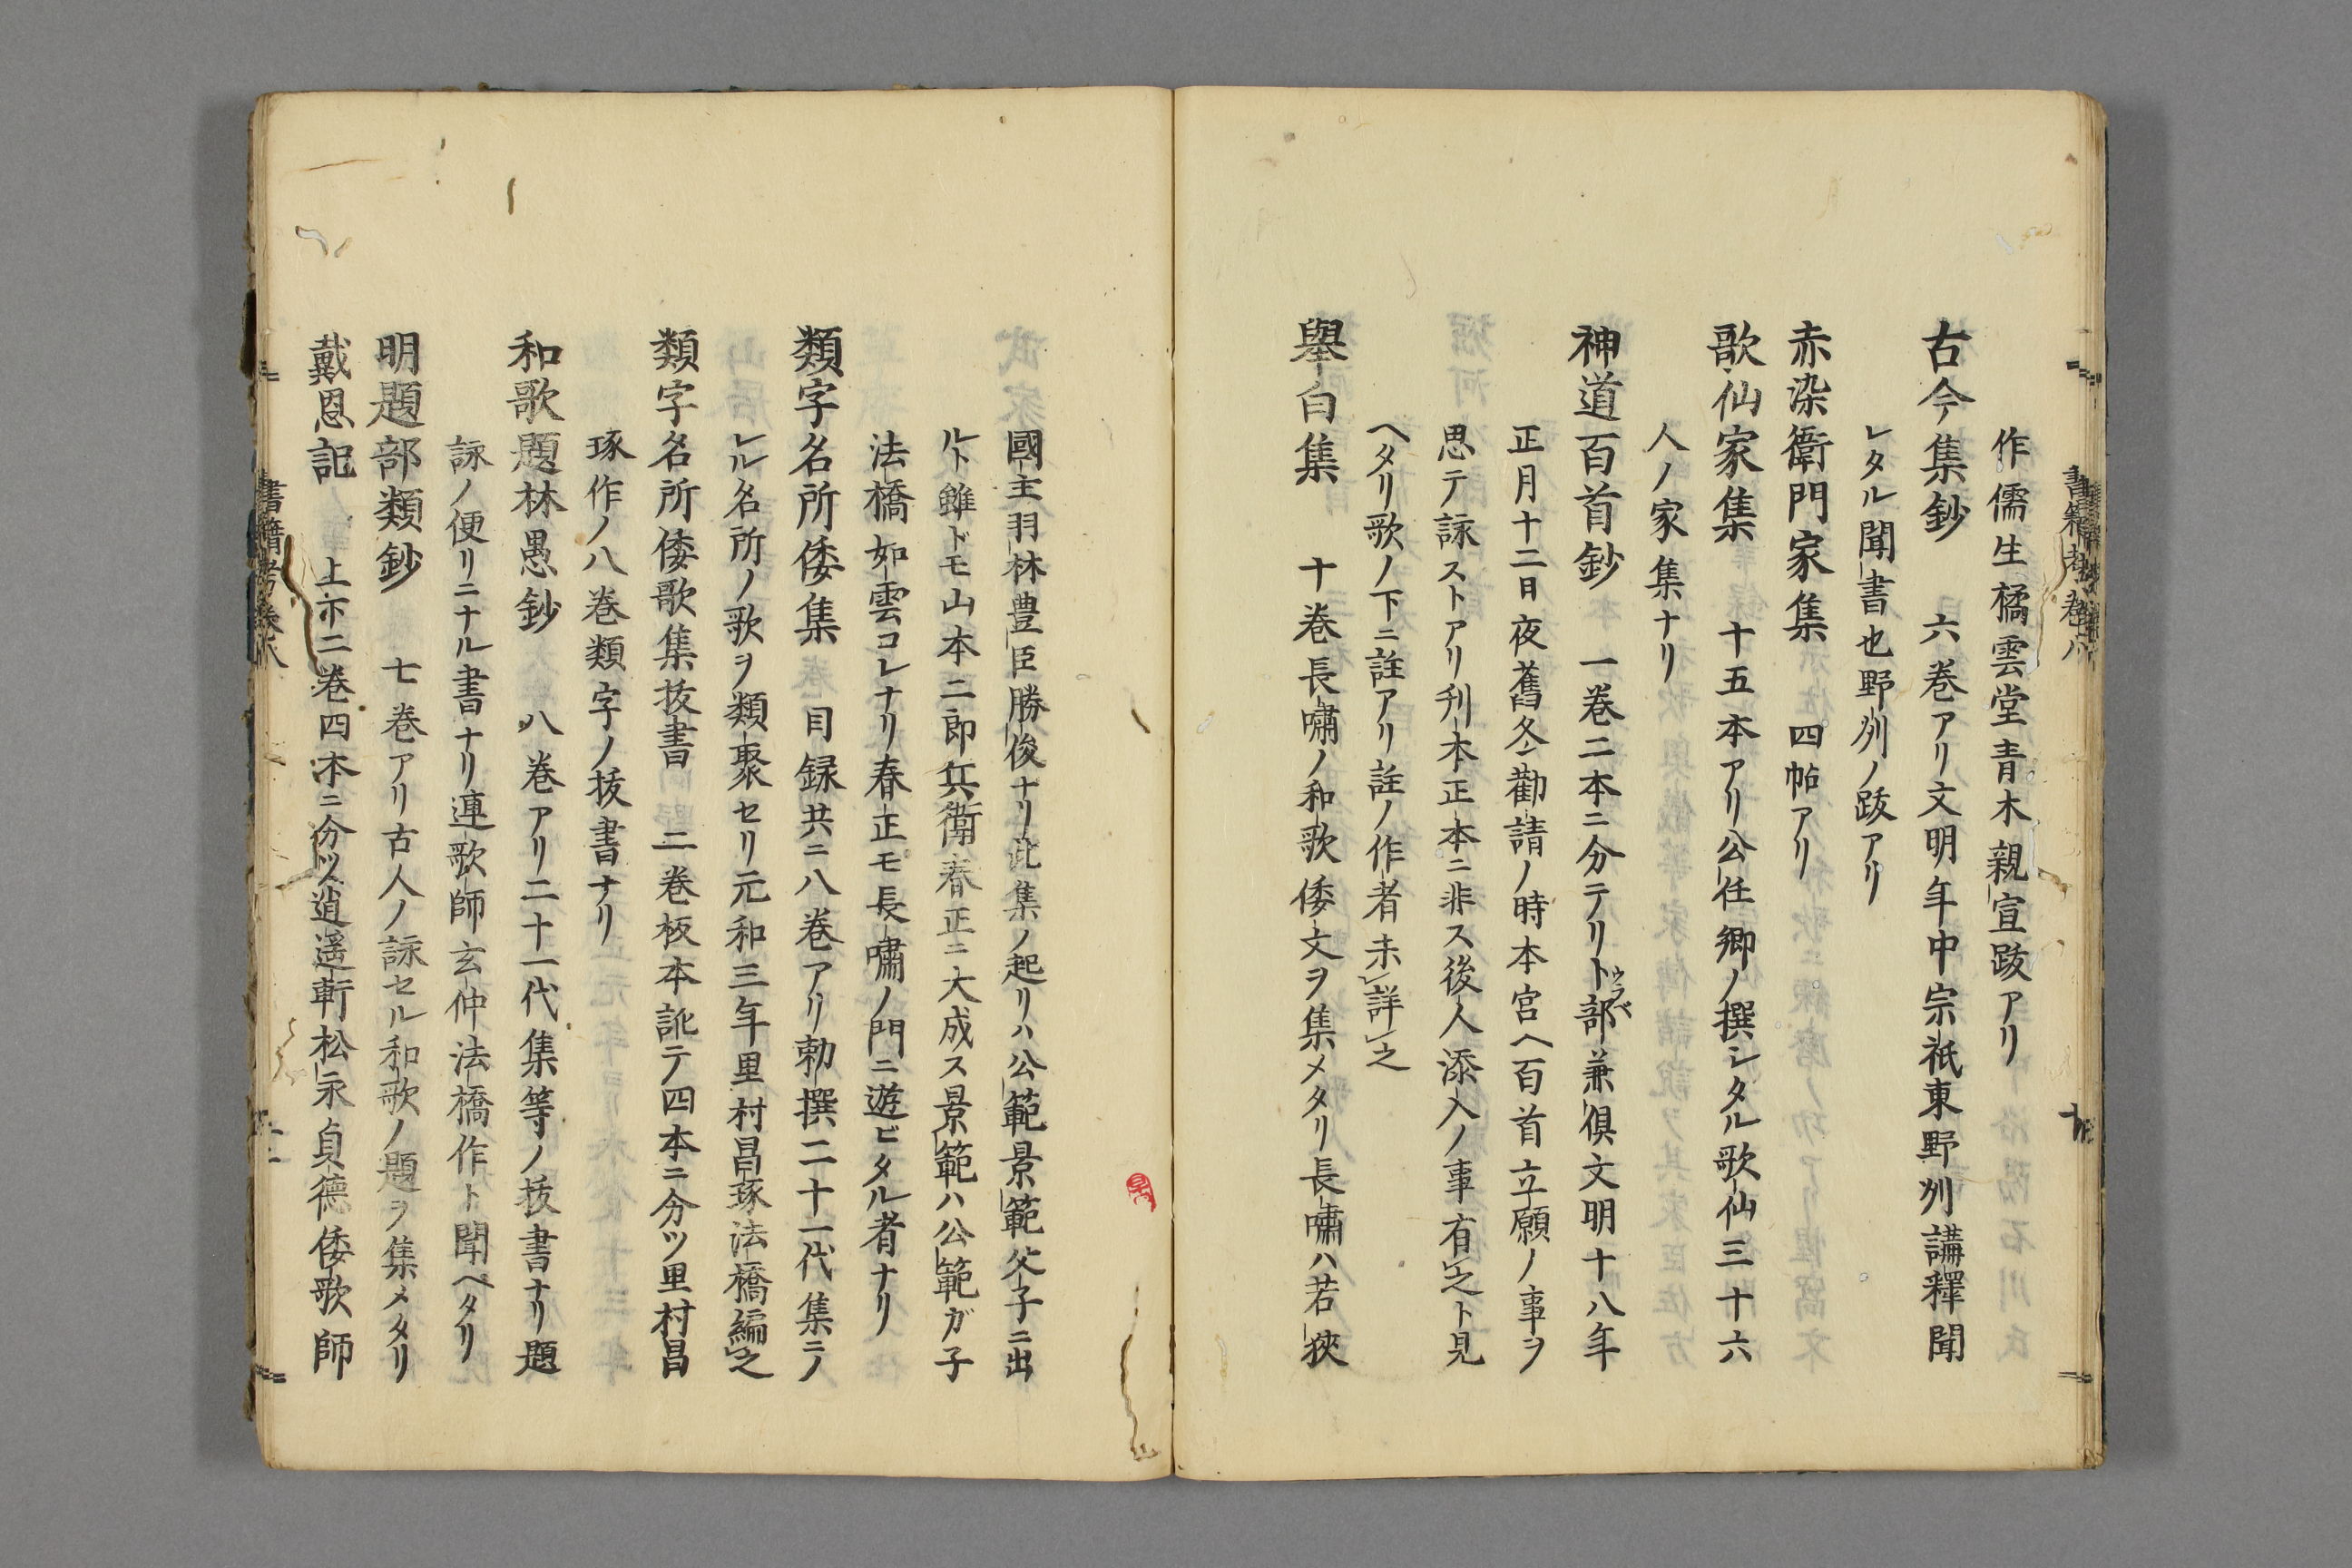 作儒生橘雲堂青木親宣跋アリ
古今集鈔　六巻アリ文明年中宗祇東野刕講釋聞
レタル聞書也野刕ノ跋アリ
赤染衛門家集　四帖アリ
歌仙家集　十五本アリ公任卿ノ撰シタル歌仙三十六
人ノ家集ナリ
神道百首鈔　一巻二本ニ分テリト部兼倶文明十八年
ウラベ
正月十二日夜舊冬勸請ノ時本宮ヘ百首立願ノ事ヲ
思テ詠ストアリ刋本正本ニ非ス後人添入ノ事有之ト見
ヘタリ歌ノ下ニ註アリ註ノ作者未詳之
舉白集　十巻長嘯ノ和歌倭文ヲ集メタリ長嘯ハ若狹
國主羽林豊臣勝俊ナリ此集ノ起リハ公範景範父子ニ出
ルト雖ドモ山本二郎兵衛春正ニ大成ス景範ハ公範ガ子
法橋如雲コレナリ春正モ長嘯ノ門ニ遊ビタル者ナリ
類字名所倭集　目録共ニ八巻アリ勅撰二十一代集ニノ
レル名所ノ歌ヲ類聚セリ元和三年里村昌琢法橋編之
類字名所倭歌集抜書　二巻板本訛テ四本ニ分ツ里村昌
琢作ノ八巻類字ノ抜書ナリ
和歌題林愚鈔　八巻アリ二十一代集等ノ抜書ナリ題
詠ノ便リニナル書ナリ連歌師玄仲法橋作ト聞ヘタリ
明題部類鈔　七巻アリ古人ノ詠セル和歌ノ題ヲ集メタリ
戴恩記　上下二巻四本ニ分ツ逍遥軒松永貞德倭歌師
書籍考巻八